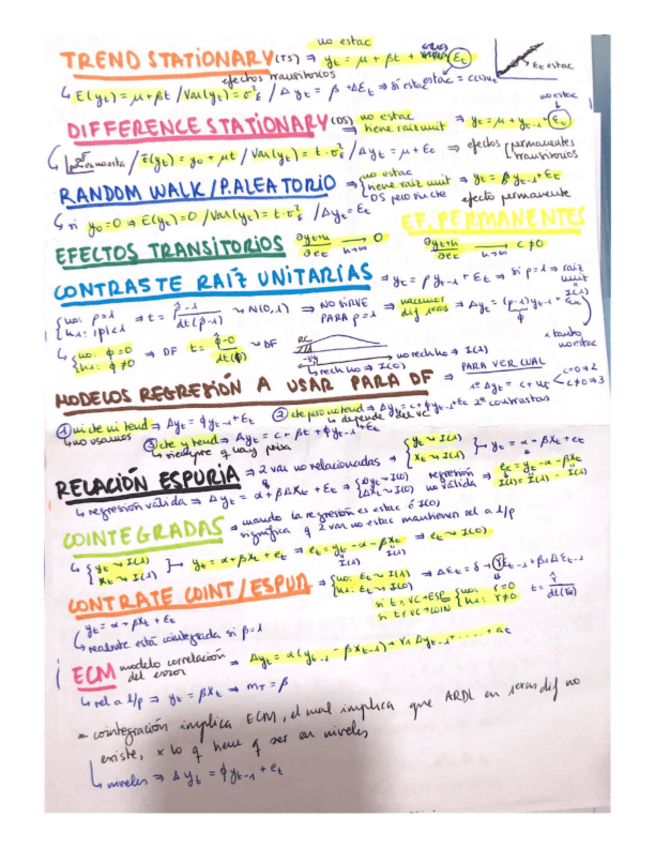 no estac
TREND STATIONARY (TS) ⇒ yt = μ + βt + εt
εt estac
efectos transitorios
↳ E(yt) = μ + βt / Var(yt) = σ²ε / Δyt = β + Δεt ⇒ si estac
no estac
DIFFERENCE STATIONARY (DS) no estac ⇒ tiene raiz unit ⇒ yt = μ + yt-1 + εt
E(yt) = y0 + μt / Var(yt) = t · σ²ε / Δyt = μ + εt ⇒ efectos permanentes transitorios
RANDOM WALK / P. ALEATORIO ⇒ { no estac tiene raiz unit ⇒ yt = β yt-1 + εt
efecto permanente
↳ si y0 = 0 ⇒ E(yt) = 0 / Var(yt) = t · σ²ε / Δyt = εt
EF. PERMANENTES
EFECTOS TRANSITORIOS ∂yt+h/∂εt → h→∞ 0
∂yt+h/∂εt → h→∞ c ≠ 0
CONTRASTE RAÍZ UNITARIAS ⇒ yt = ρ yt-1 + εt ⇒ si ρ = 1 ⇒ raiz unit
{ H0: ρ = 1 H1: |ρ| < 1 ⇒ t = ρ̂ - 1 / dt(ρ̂-1) ~ N(0,1) ⇒ NO SIRVE PARA ρ = 1 ⇒ hacemos dif ⇒ Δyt = (ρ-1) yt-1 + εt
I(1)
ϕ
↳ { H0: ϕ = 0 H1: ϕ ≠ 0 ⇒ DF t = ϕ̂ - 0 / dt(ϕ̂) ~ DF
RC
no rech H0 ⇒ I(1)
↳ rech H0 ⇒ I(0)
x tanto no estac
MODELOS REGRESIÓN A USAR PARA DF ⇒ PARA VER CUAL
1º Δyt = c + ut < c = 0 ⇒ 2 c ≠ 0 ⇒ 3
2º contrastas
① ni cte ni tend ⇒ Δyt = ϕ yt-1 + εt
② cte pero no tend ⇒ Δyt = c + ϕ yt-1 + εt
↳ no usamos
↳ depende del VC
③ cte y tend ⇒ Δyt = c + βt + ϕ yt-1 + εt
↳ siempre q haya
RELACIÓN ESPURIA ⇒ 2 var no relacionadas ⇒ { yt ~ I(1) xt ~ I(1) } → yt = α + βXt + et
↳ regresión válida ⇒ Δyt = α + βΔXt + εt ⇒ { Δyt ~ I(0) Δxt ~ I(0)
regresión no válida ⇒ et = yt - α - βXt
I(1) = I(1) - I(1)
COINTEGRADAS ⇒ cuando la regresión es estac ó I(0)
significa q 2 var no estac mantienen rel a l/p
↳ { yt ~ I(1) xt ~ I(1) } → yt = α + βxt + et ⇒ et = yt - α - βxt ⇒ et ~ I(0)
I(1) I(1)
CONTRATE COINT/ESPUR ⇒ { H0: εt ~ I(1) H1: εt ~ I(0) ⇒ Δεt = δ + γεt-1 + β1Δεt-1
si t > VC → ESP { H0: γ = 0 H1: γ ≠ 0 t = γ̂ / dt(γ̂)
si t < VC → COIN
yt = α + βxt + εt
↳ realmente está cointegrada si β = 1
ECM modelo correlación del error ⇒ Δyt = α(yt-1 - βxt-1) + γ1 Δyt-1 + .... + at
↳ rel a l/p ⇒ yt = βxt ⇒ mT = β
cointegración implica ECM, el cual implica que ARDL en 1eras dif no
existe, x lo q tiene q ser en niveles
↳ niveles ⇒ Δyt = ϕ yt-1 + et